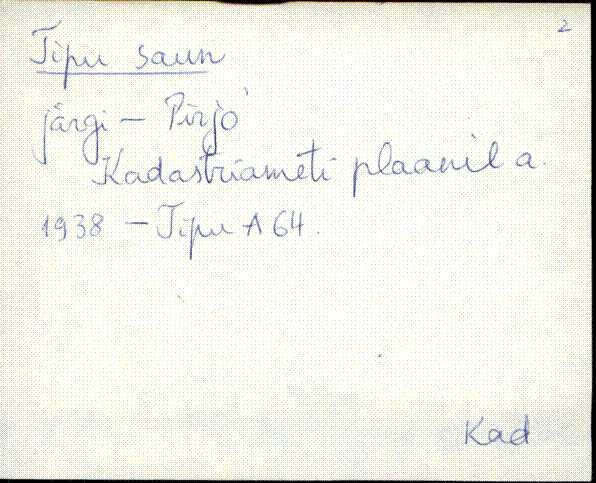 2
Tipu saun
järgi – Pirjo
Kadastriameti plaanil a.
1938 – Tipu A 64.
Kad